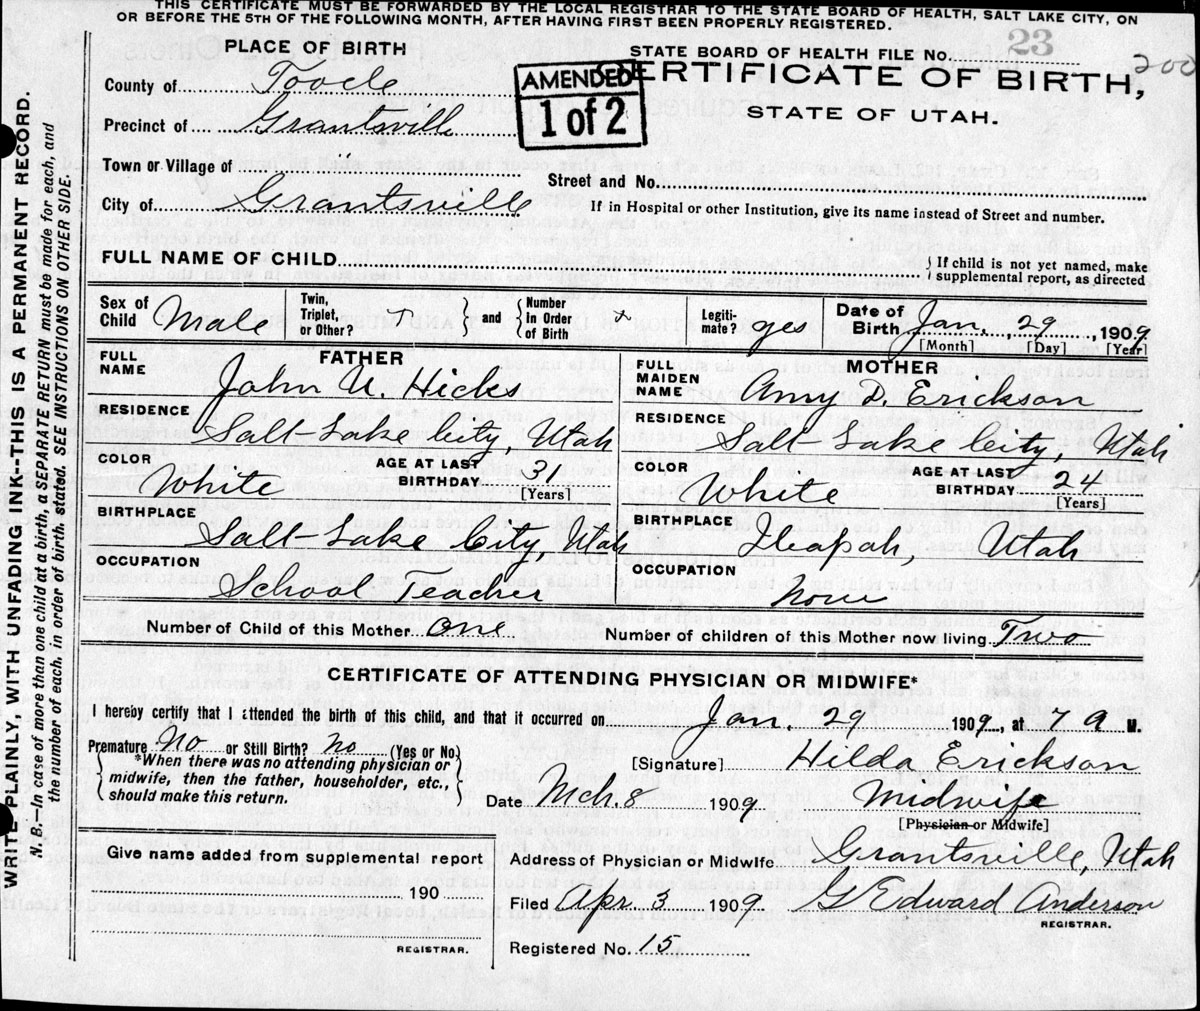 THIS CERTIFICATE MUST BE FORWARDED BY THE LOCAL REGISTRAR TO THE STATE BOARD OF HEALTH, SALT LAKE CITY, ON
OR BEFORE THE 5TH OF THE FOLLOWING MONTH, AFTER HAVING FIRST BEEN PROPERLY REGISTERED.
PLACE OF BIRTH
STATE BOARD OF HEALTH FILE NO. 23
200
County of Tooele
AMENDED
1 of 2
CERTIFICATE OF BIRTH,
Precinct of Grantsville
STATE OF UTAH.
Town or Village of "
Street and No.
City of Grantsville
If in Hospital or other Institution, give its name instead of Street and number.
FULL NAME OF CHILD
If child is not yet named, make
supplemental report, as directed
Sex of Child Male
Twin, Triplet, or Other? +
and
Number In Order of Birth +
Legiti-mate? yes
Date of Birth Jan. 29, 1909
[Month] [Day] [Year]
FATHER
FULL NAME John U. Hicks
MOTHER
FULL MAIDEN NAME Amy D. Erickson
RESIDENCE Salt-Lake City, Utah
RESIDENCE Salt-Lake City, Utah
COLOR White
AGE AT LAST BIRTHDAY 31
[Years]
COLOR White
AGE AT LAST BIRTHDAY 24
[Years]
BIRTHPLACE Salt-Lake City, Utah
BIRTHPLACE Ibapah, Utah
OCCUPATION School Teacher
OCCUPATION None
Number of Child of this Mother One
Number of children of this Mother now living Two
CERTIFICATE OF ATTENDING PHYSICIAN OR MIDWIFE*
I hereby certify that I attended the birth of this child, and that it occurred on Jan. 29 1909, at 7 A M.
Premature No or Still Birth? No (Yes or No)
*When there was no attending physician or
midwife, then the father, householder, etc.,
should make this return.
[Signature] Hilda Erickson
Date Mch. 8 1909
Midwife
[Physician or Midwife]
Give name added from supplemental report
190
REGISTRAR.
Address of Physician or Midwife Grantsville, Utah
Filed Apr 3 1909 G Edward Anderson
REGISTRAR.
Registered No. 15
WRITE PLAINLY, WITH UNFADING INK--THIS IS A PERMANENT RECORD.
N. B.—In case of more than one child at a birth, a SEPARATE RETURN must be made for each, and
the number of each, in order of birth, stated. SEE INSTRUCTIONS ON OTHER SIDE.